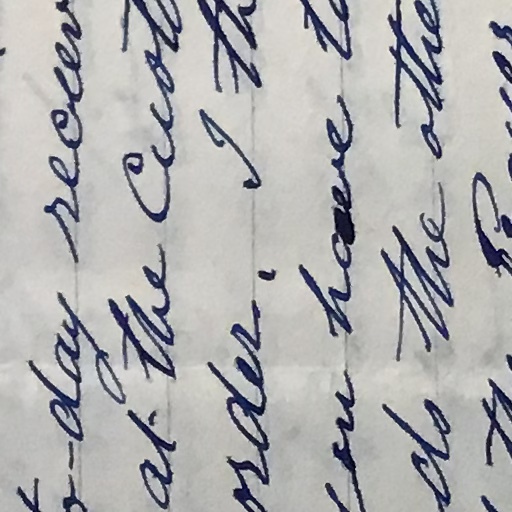 to-day reciev
at the Custo
order. I th
you have to
ds the othe
the